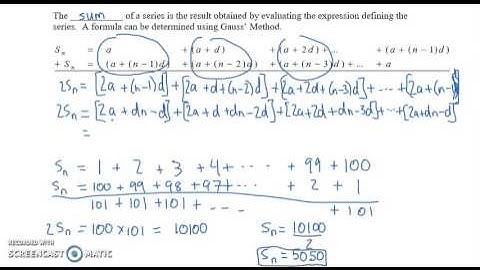 The sum of a series is the result obtained by evaluating the expression defining the
series. A formula can be determined using Gauss' Method.
Sₙ = a + (a + d) + (a + 2d) + ... + (a + (n − 1)d)
+ Sₙ = (a + (n − 1)d) + (a + (n − 2)d) + (a + (n − 3)d) + ... + a
2Sₙ = [2a + (n-1)d] + [2a + d + (n-2)d] + [2a + 2d + (n-3)d] + ... + [2a + (n-1)
2Sₙ = [2a + dn - d] + [2a + d + dn - 2d] + [2a + 2d + dn - 3d] + ... + [2a + dn - d]
=
Sₙ = 1 + 2 + 3 + 4 + ... + 99 + 100
Sₙ = 100 + 99 + 98 + 97 + ... + 2 + 1
101 + 101 + 101 + ... + 101
2Sₙ = 100 × 101 = 10100 Sₙ = 10100/2
Sₙ = 5050
RECORDED WITH
SCREENCAST MATIC